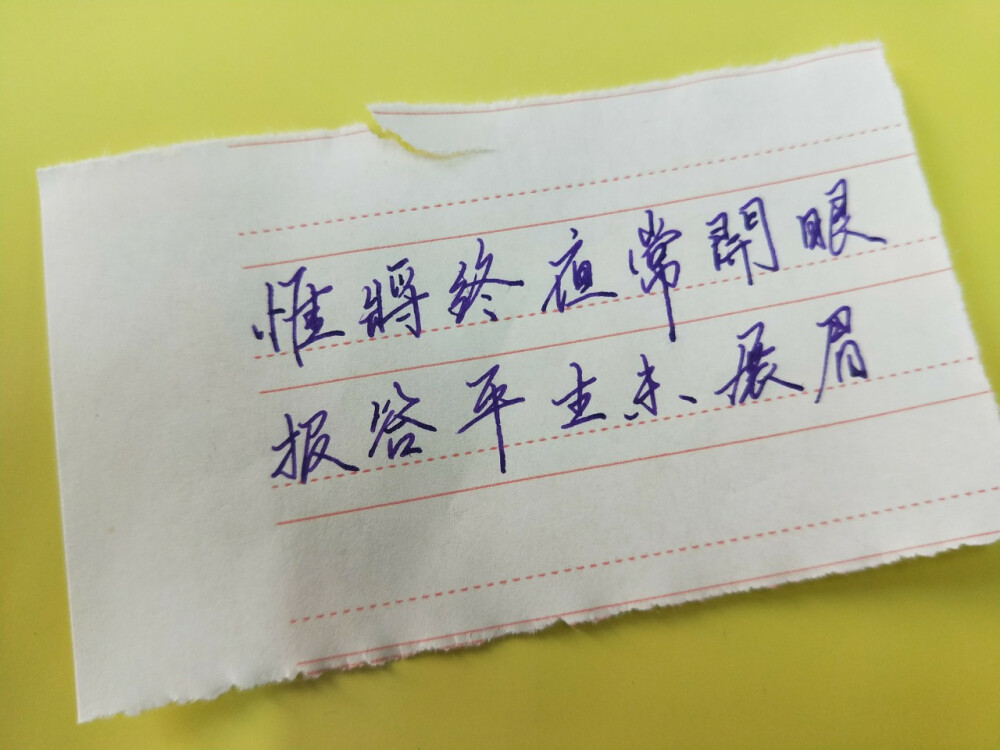 惟將終夜常開眼
报答平生未展眉